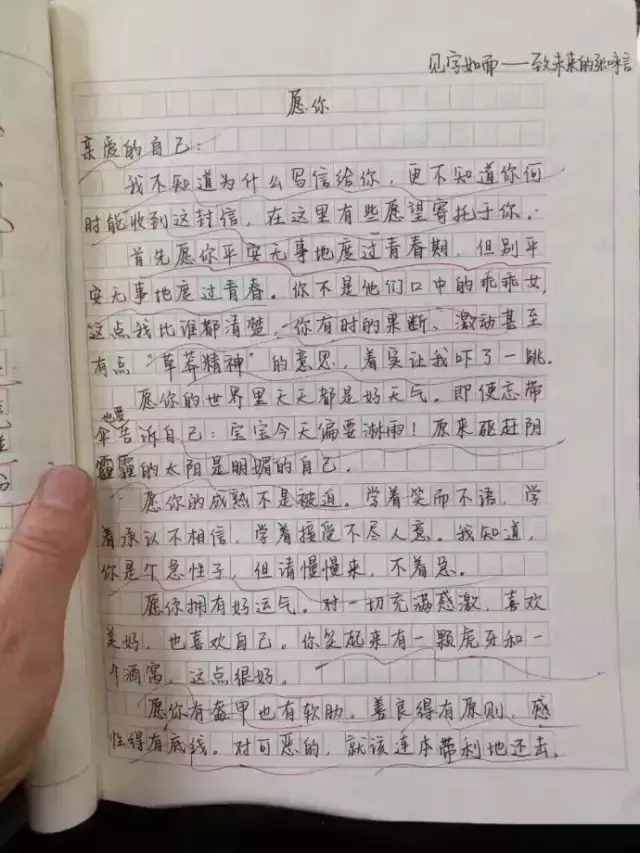 见字如面——致未来的张咏言
愿你
亲爱的自己：
我不知道为什么写信给你，更不知道你何
时能收到这封信，在这里有些愿望寄托于你。
首先愿你平安无事地度过青春期，但别平
安无事地度过青春。你不是他们口中的乖乖女，
这点我比谁都清楚，你有时的果断、激动甚至
有点“草莽精神”的意思，着实让我吓了一跳。
愿你的世界里天天都是好天气。即便忘带
伞也要告诉自己：宝宝今天偏要淋雨！原来驱赶阴
霾的太阳是明媚的自己。
愿你的成熟不是被迫。学着笑而不语，学
着承认不相信，学着接受不尽人意。我知道，
你是个急性子，但请慢慢来，不着急。
愿你拥有好运气。对一切充满感激，喜欢
美好，也喜欢自己。你笑起来有一颗虎牙和一
个酒窝，这点很好。
愿你有盔甲也有软肋。善良得有原则，感
性得有底线。对可恶的，就该连本带利地还去。